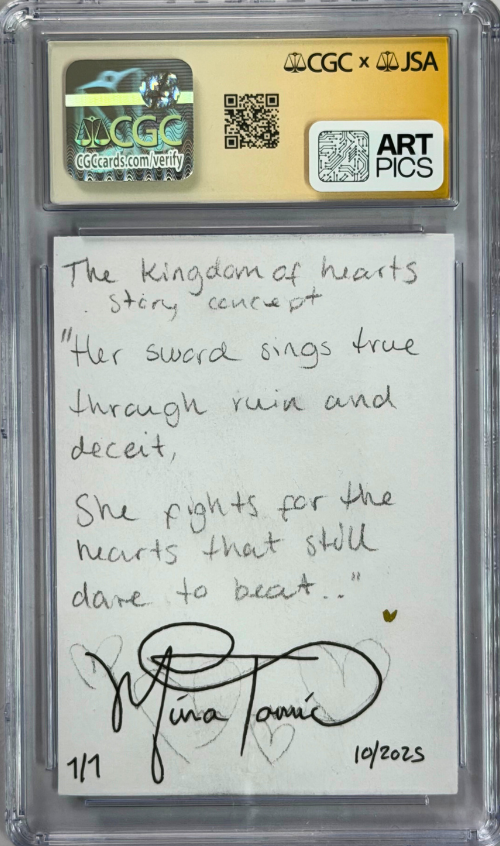 CGC x JSA
CGC
CGCcards.com/verify
ART
PICS
The kingdom of hearts
story concept
"Her sword sings true
through ruin and
deceit,
She fights for the
hearts that still
dare to beat.."
Mina Tomic
1/1
10/2025